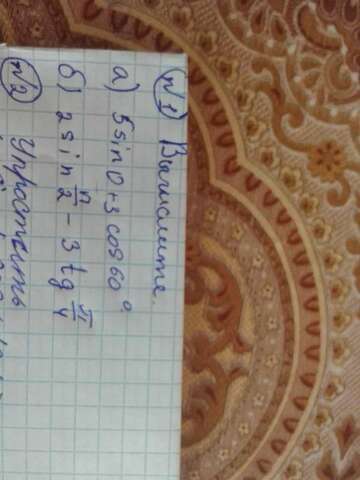 №1 Вычислите
а) 5sin0+3cos60°
б) 2sin π/2 - 3tg π/4
№2 Упростить